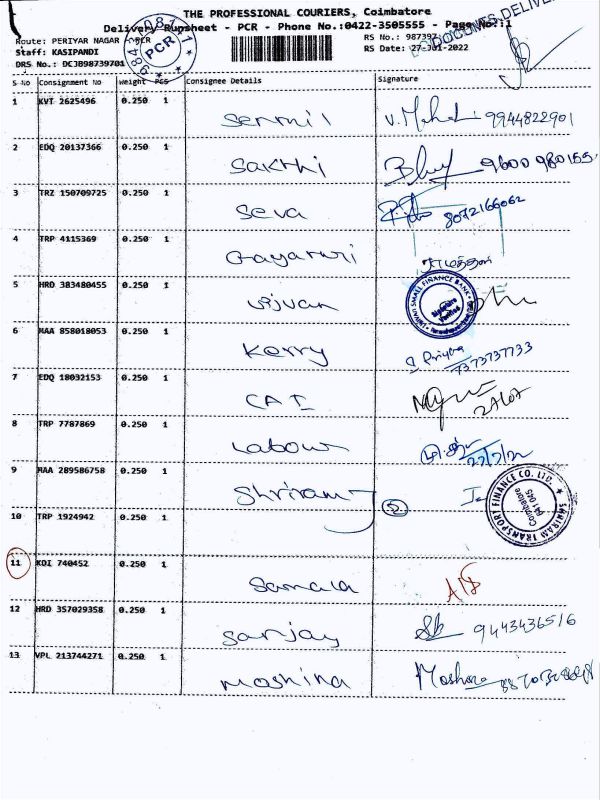 THE PROFESSIONAL COURIERS, Coimbatore
Delivery Runsheet - PCR - Phone No.:0422-3505555 - Page No.:1
DOCUMENTS DELIVER
Route: PERIYAR NAGAR - PCR
RS No.: 987397
Staff: KASIPANDI
RS Date: 27-Jul-2022
DRS No.: DCJB98739701
PCR
S No Consignment No Weight PCS Consignee Details Signature
1 KVT 2625496 0.250 1 Senmil V. Mahal 9944822901
2 EDQ 20137366 0.250 1 Sakthi 9600 980155
3 TRZ 150709725 0.250 1 Seva 8072166062
4 TRP 4115369 0.250 1 Gayatrri
5 HRD 383480455 0.250 1 Ujjivan
UJJIVAN SMALL FINANCE BANK
Signature Verified
6 MAA 858018053 0.250 1 Kerry Priya 7373737733
7 EDQ 18032153 0.250 1 CAI 27/07
8 TRP 7787869 0.250 1 Labour 27/7/22
9 MAA 289586758 0.250 1 Shriram 52
SHRIRAM TRANSPORT FINANCE CO. LTD.
Coimbatore
641 045
10 TRP 1924942 0.250 1
11 KOI 740452 0.250 1 Samala
12 HRD 357029358 0.250 1 Sanjay Sk 9443436516
13 VPL 213744271 0.250 1 Moshina Moshina